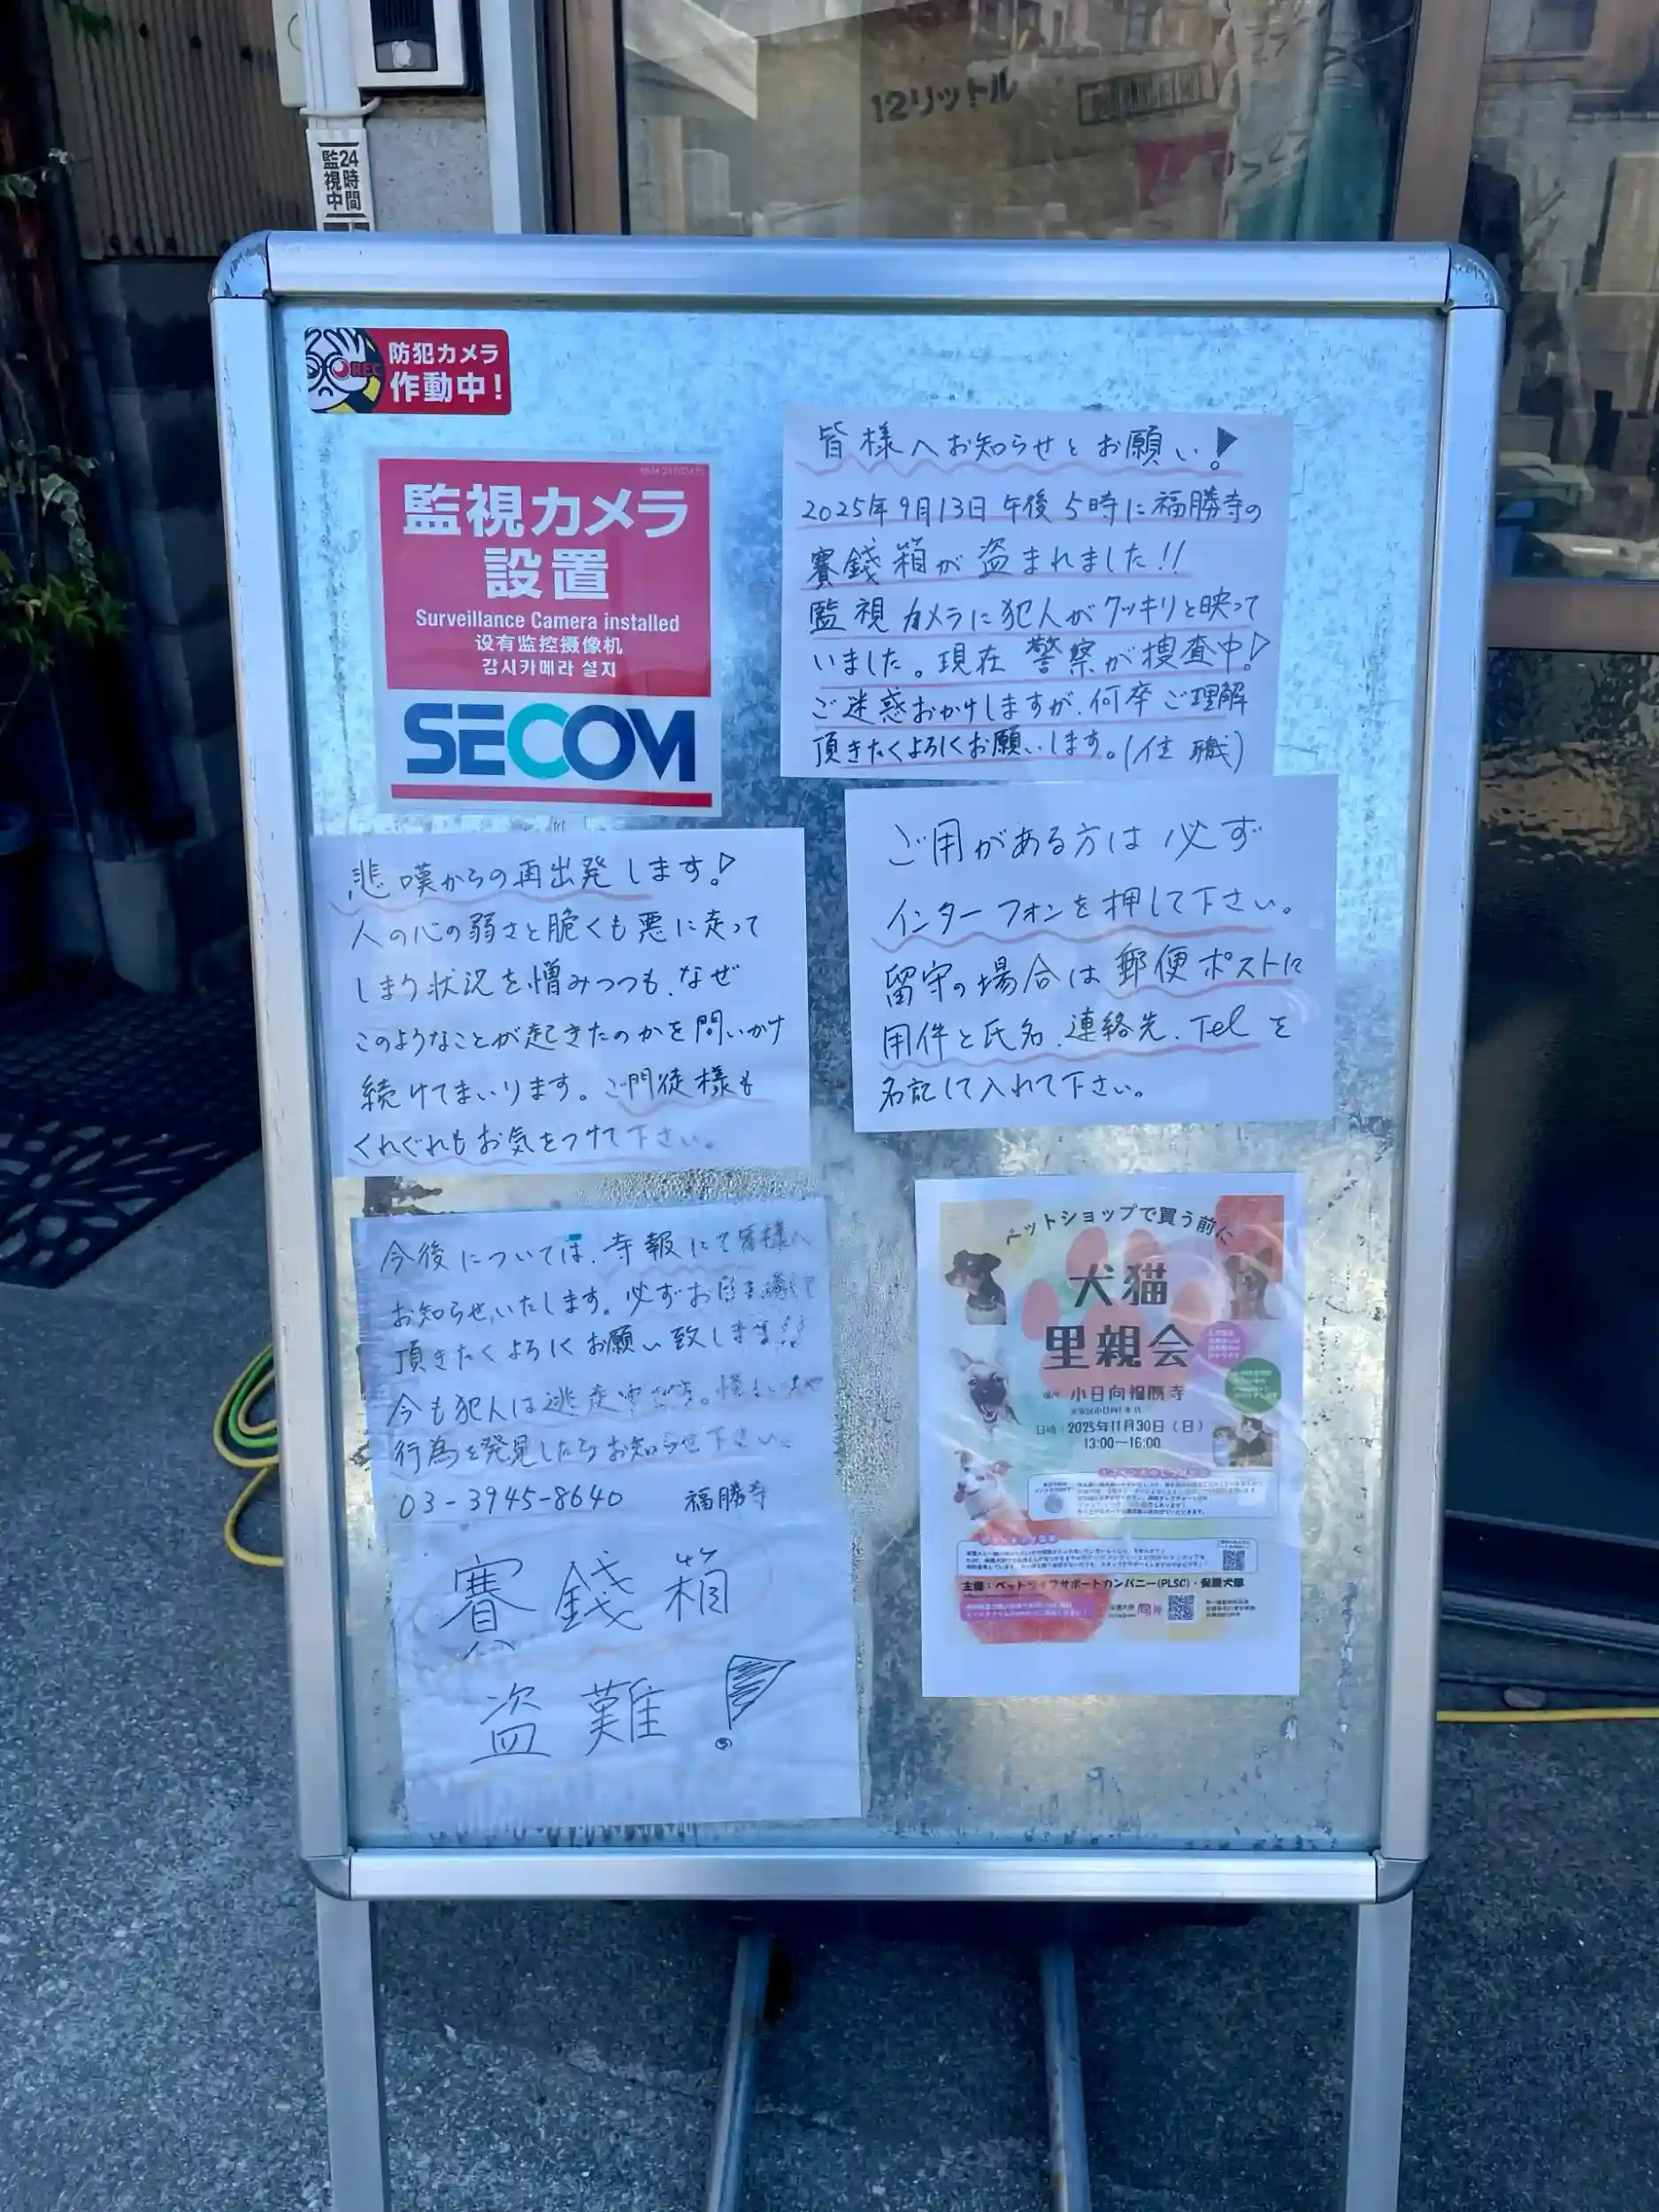 12リットル
24時間
監視中
防犯カメラ
作動中!
監視カメラ
設置
Surveillance Camera installed
设有监控摄像机
감시카메라 설치
SECOM
皆様へお知らせとお願い!
2025年9月13日午後5時に福勝寺の
賽銭箱が盗まれました!!
監視カメラに犯人がクッキリと映って
いました。現在警察が捜査中!
ご迷惑おかけしますが、何卒ご理解
頂きたくよろしくお願いします。(住職)
悲嘆からの再出発します!
人の心の弱さと脆くも悪に走って
しまう状況を憎みつつも、なぜ
このようなことが起きたのかを問いかけ
続けてまいります。ご門徒様も
くれぐれもお気をつけて下さい。
ご用がある方は必ず
インターフォンを押して下さい。
留守の場合は郵便ポストに
用件と氏名、連絡先、Telを
名記して入れて下さい。
今後については、寺報にて皆様へ
お知らせいたします。必ずお目を通して
頂きたくよろしくお願い致します!!
今も犯人は逃走中です。
行為を発見したらお知らせ下さい。
03-3945-8640 福勝寺
賽銭箱
盗難!
ペットショップで買う前に
犬猫
里親会
小日向福勝寺
日時:2025年11月30日(日)
13:00〜16:00
主催:ペットライフサポートカンパニー(PLSC)・保護犬部